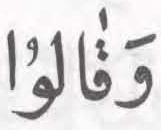 وَقَالُوا